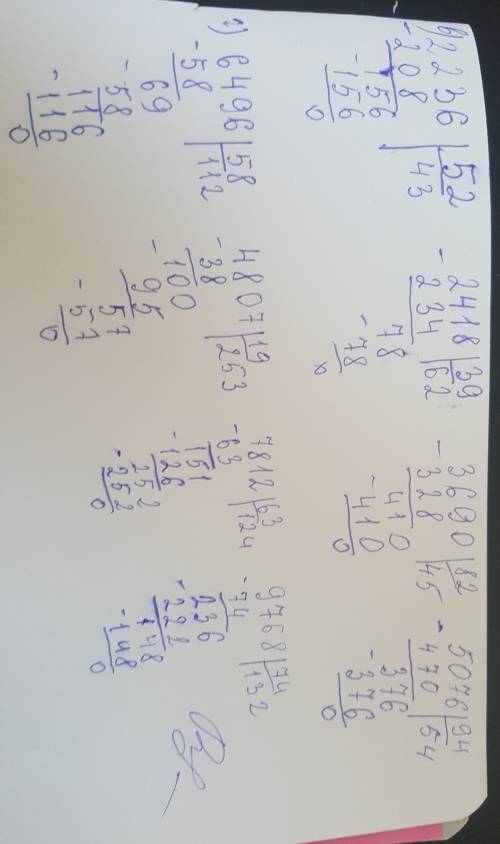 в) 2236 | 52
-208 | 43
-156
156
0
- 2418 | 39
234 | 62
78
-78
0
- 3690 | 82
328 | 45
410
-410
0
- 5076 | 94
470 | 54
376
-376
0
г) 6496 | 58
-58 | 112
69
-58
116
-116
0
4807 | 19
-38 | 253
100
-95
57
-57
0
7812 | 63
-63 | 124
151
-126
252
-252
0
9768 | 74
-74 | 132
236
-222
148
-148
0